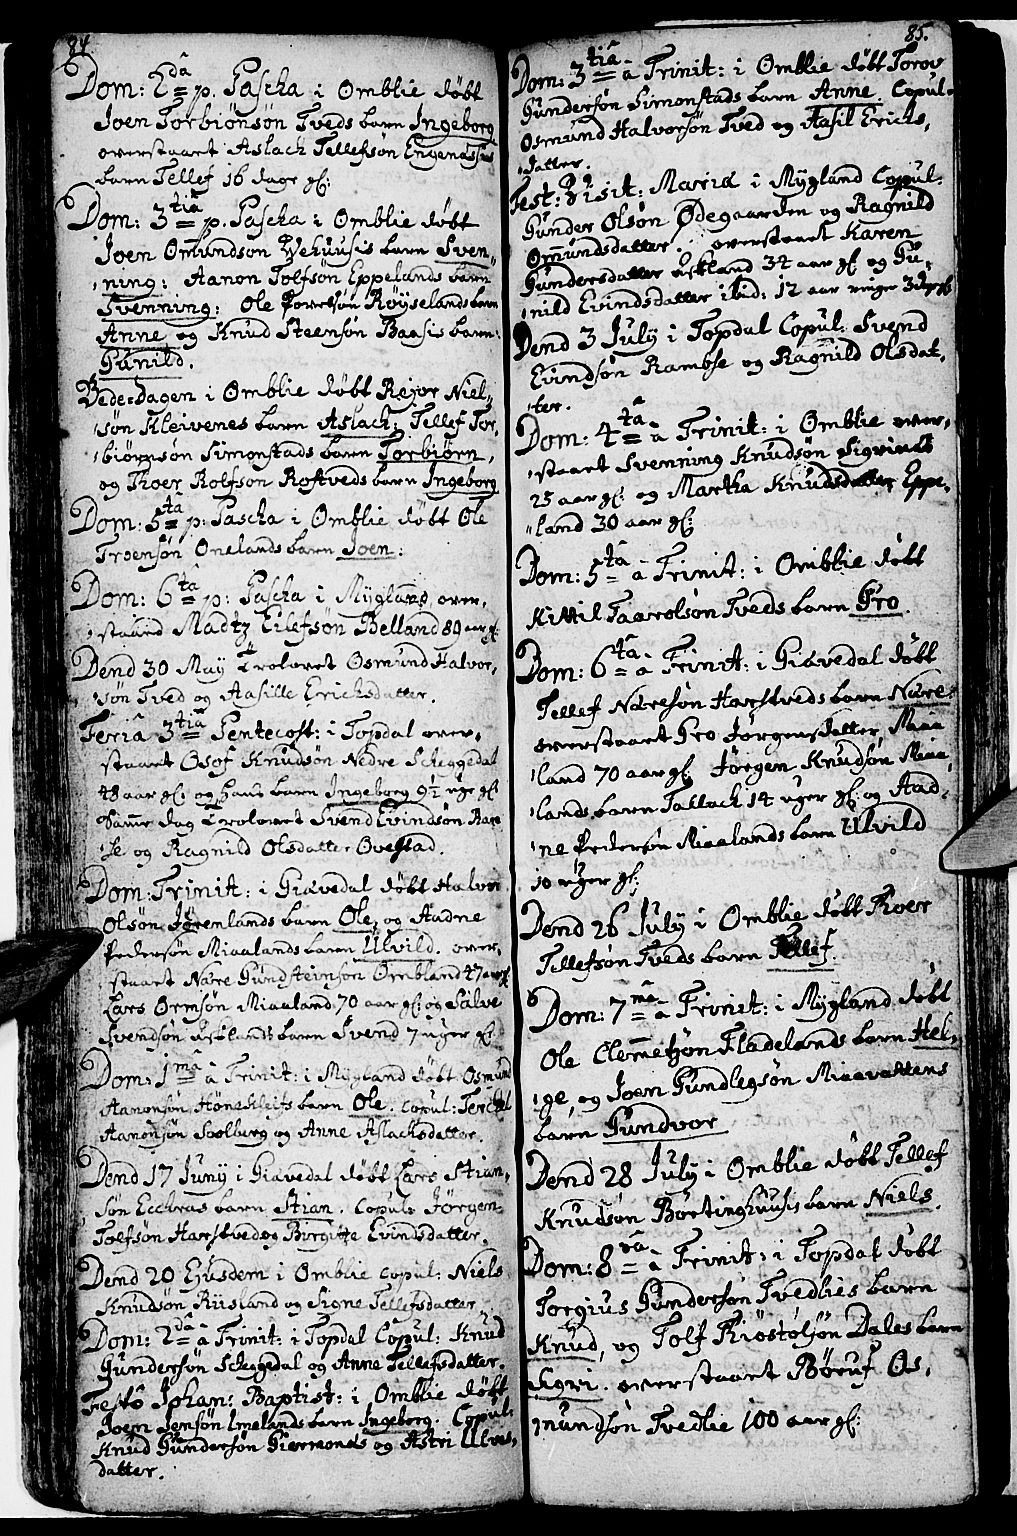 84
Dom: 2dâ p. Pascha i Omblie døbt
Joen Torbiönsön Tveds barn Ingeborg
overstaaet Aslach Tellefsön Engenæsses
barn Tellef 16 dage gl:
Dom: 3tiâ p. Pascha i Omblie døbt
Joen Omundson Vehuusis barn Sven-
ning: Aanon Tolfsön Eppelands barn
Svenning: Ole Povelsön Röjselands barn
Anne og Knud Steensön Baasis barn:
Gunild.
Bede-Dagen i Omblie døbt Rejor Niel-
sön Kleivenes barn Aslach: Tellef Tor-
biörnsön Simonstads barn Torbiörn,
og Thoer Rolfson Roftveds barn Ingeborg
Dom: 5tâ p: Pascha i Omblie døbt Ole
Troensön Onelands barn Joen:
Dom: 6tâ p: Pascha i Mygland over-
staaed Madtz Eilefsön Belland 89 aar gl:
Dend 30 May Trolovet Osmund Halvor-
sön Tved og Aasille Ericksdatter.
Feriâ 3tiâ Pentecost: i Topdal over-
staaet Osof Knudsön Nedre Scheggedal
48 aar gl: og Hans barn Ingeborg 9½ uge gl:
Samme dag Trolovet Svend Evindsön Ram-
se og Ragnild Olsdatter Ovestad.
Dom: Trinit: i Giævedal døbt Halvor
Olsön Jörenlands barn Ole, og Aadne
Pedersön Miaalands barn Ulvild. over-
staaet Nære Gundsteinsön Ombland 47 aar gl:
Lars Ormsön Miaaland 70 aar gl: og Salve
Svendsön Asklands barn Svend 7 uger gl:
Dom: 1mâ â Trinit: i Mygland døbt Osmund
Aanonsön Hönekleifs barn Ole. Copul: Terckel
Aanonsön Soelberg og Anne Aslachsdatter.
Dend 17 Juny i Giævedal døbt Lars Stian-
sön Eccheras barn Stian. Copul: Jörgen
Tolfsön Harstved og Birgitte Evindsdatter.
Dend 20 Ejusdem i Omblie copul: Niels
Knudsön Riisland og Signe Tellefsdatter.
Dom: 2dâ â Trinit: i Topdal Copul: Knud
Gundersön Scheggedal og Anne Tellefsdatter.
Festô Johan: Baptist: i Omblie døbt
Joen Jensön Lmelands barn Ingeborg. Copul:
Knud Gundersön Giermones og Astri Ulves-
datter.
85.
Dom: 3tiâ â Trinit: i Omblie døbt Torov
Gundersön Simonstads barn Anne. Copul:
Osmund Halvorsön Tved og Aasil Erichs-
datter.
Fest: Visit: Mariæ i Mygland Copul:
Gunder Olsön Ødegaarden og Ragnild
Omundsdatter. overstaaet Karen
Gundersdatter Askland 34 aar gl: og Gu-
nild Evindsdatter ibid: 12 aar ringe 3 dage gl:
Dend 3 July i Topdal Copul: Svend
Evindsön Ramse og Ragnild Olsdat-
ter.
Dom: 4tâ â Trinit: i Omblie over-
staaet Svenning Knudsön Sigrinas
25 aar gl: og Martha Knudsdatter Eppe-
land 30 aar gl:
Dom: 5tâ â Trinit: i Omblie døbt
Kittil Taarolsön Tveds barn Gro.
Dom: 6ta â Trinit: i Giævedal døbt
Tellef Næresön Harstveds barn Nære:
overstaaet Gro Jörgensdatter Miaa-
land 70 aar gl: Jörgen Knudsön Miaa-
lands barn Tallach 14 uger gl: og Aad-
ne Pedersön Miaalands barn Ulvild
10 uger gl:
Dend 26 July i Omblie døbt Thoer
Tellefsön Tveds barn Tellef.
Dom: 7mâ â Trinit: i Mygland døbt
Ole Clemmetsön Fladelands barn Hel-
ge, og Joen Gundlegsön Miaavattens
barn Gundvor
Dend 28 July i Omblie døbt Tellef
Knudsön Börtinghuusis barn Niels.
Dom: 8vâ â Trinit: i Topdal døbt
Torgius Gundersön Tvedlies barn
Knud, og Tolf Kiöstölsön Dales barn
Sigri. overstaaet Böruf Os-
mundsön Tvedlie 100 aar gl: